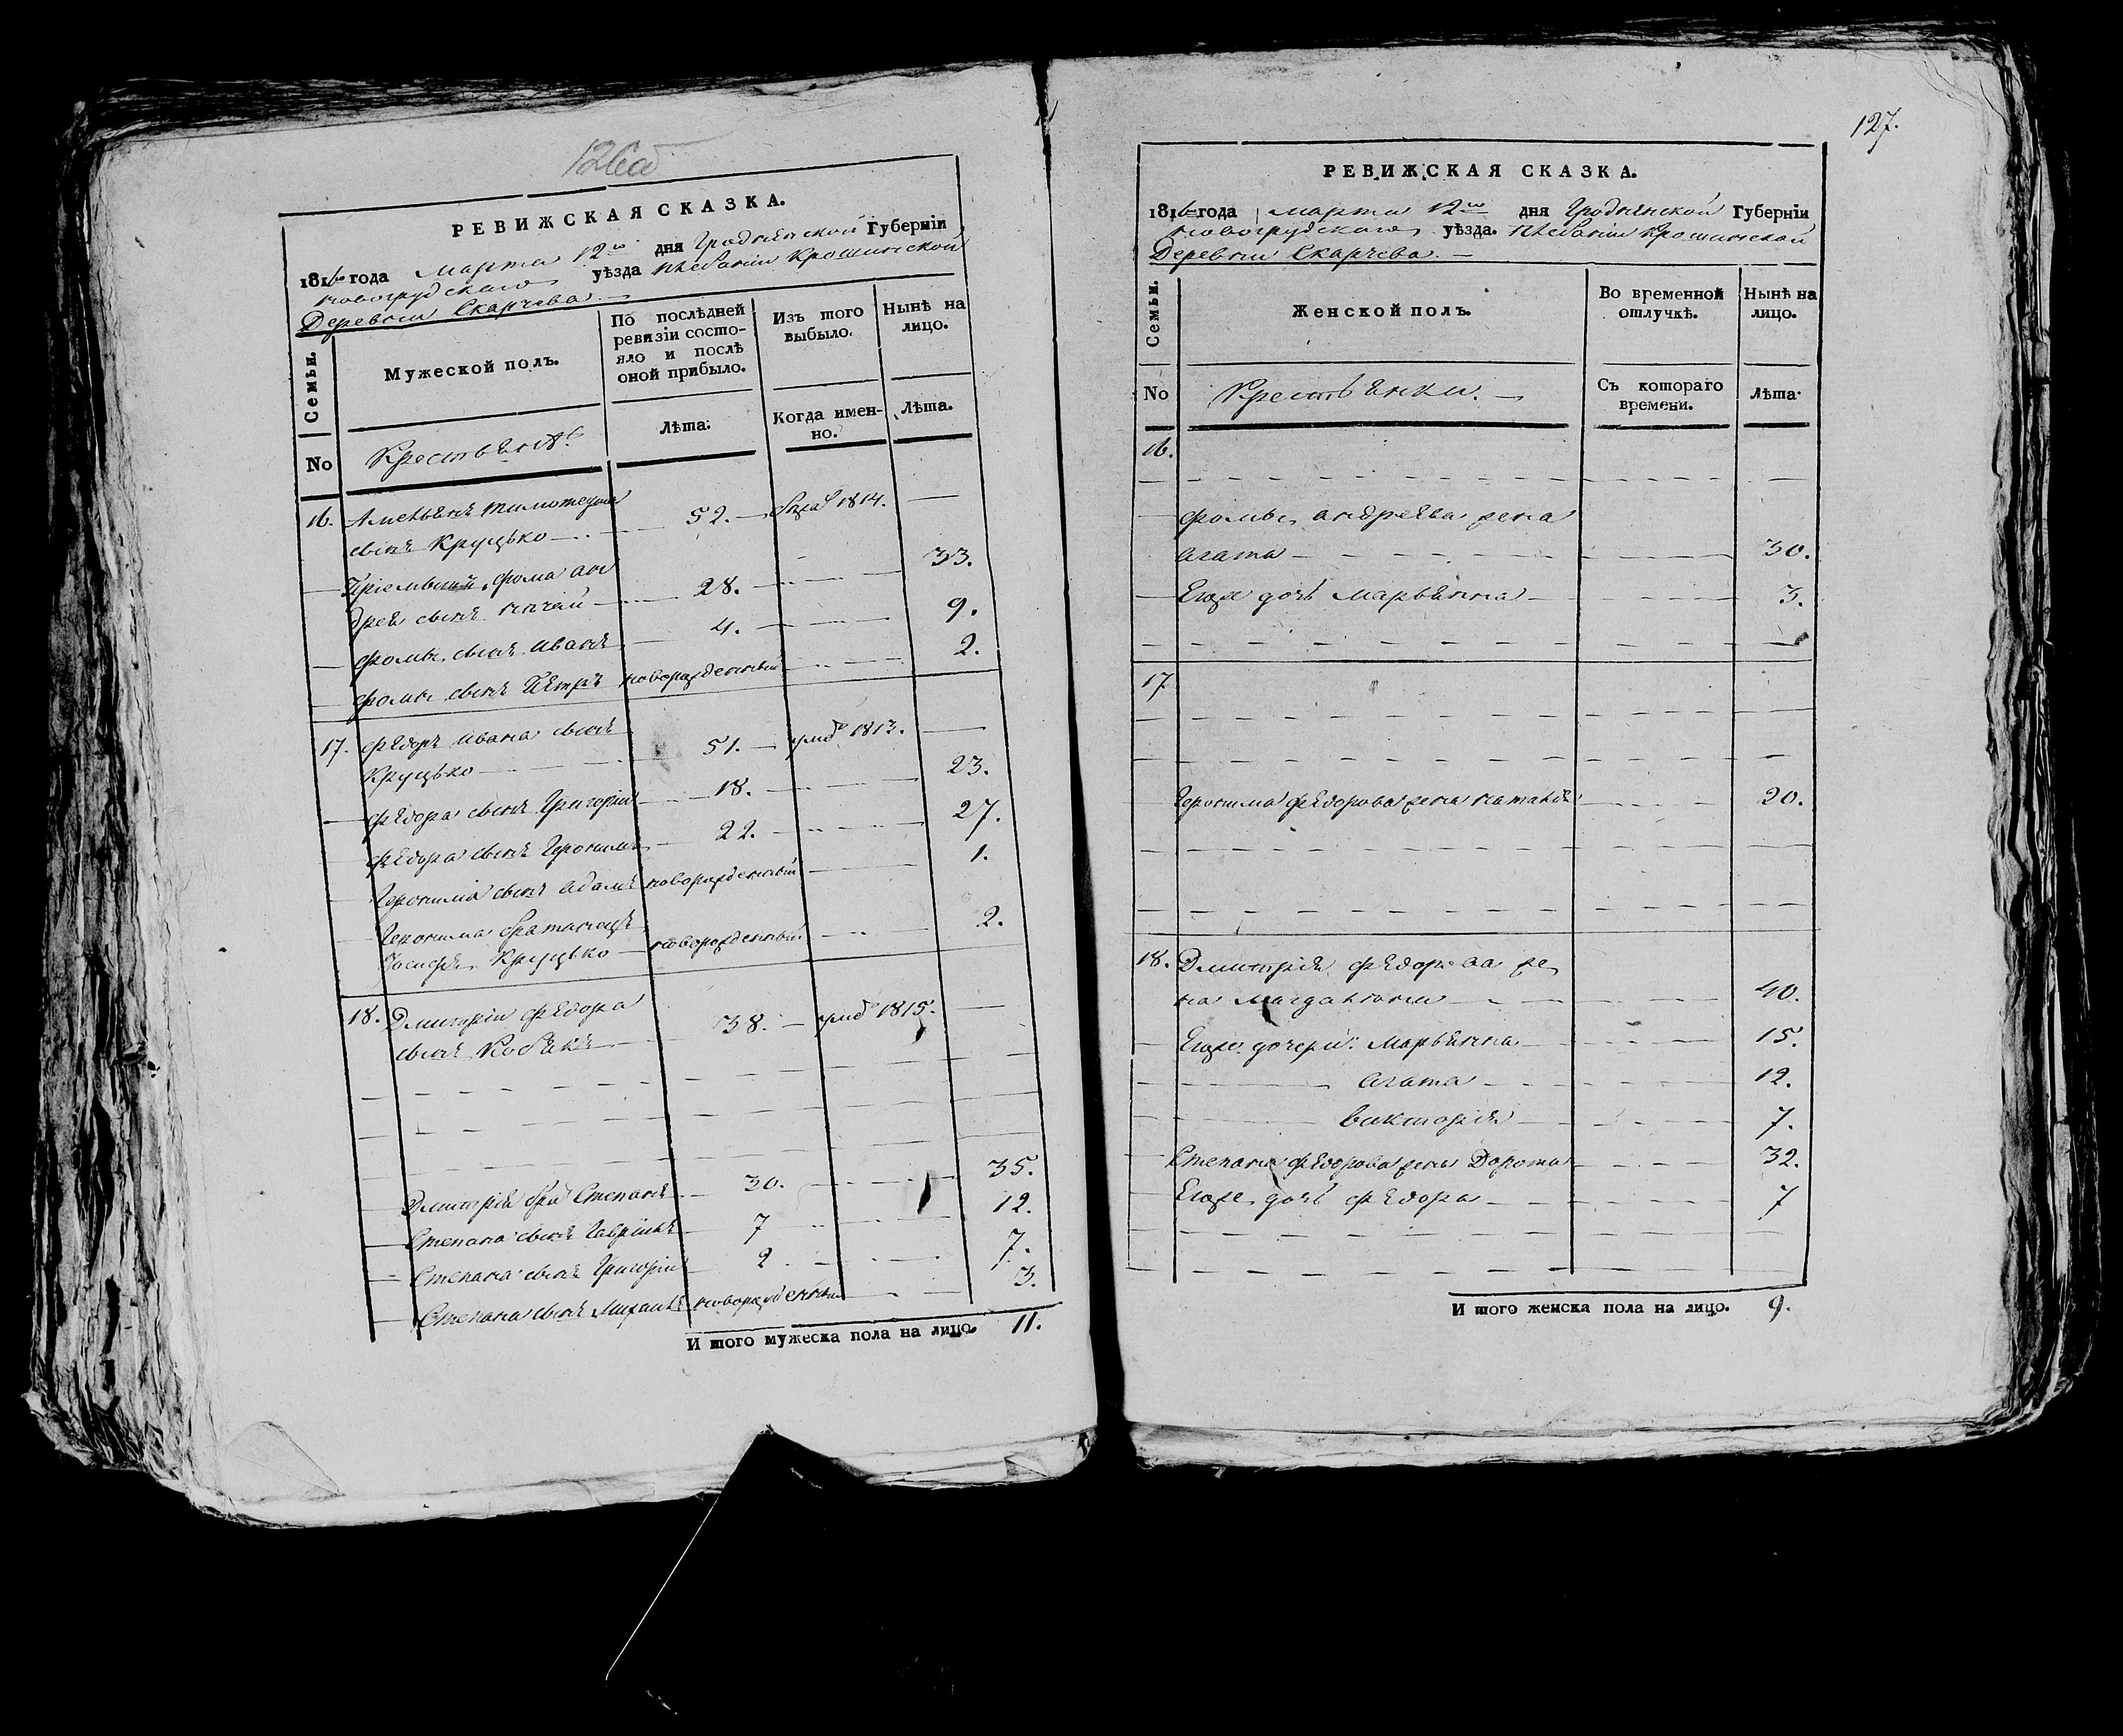 126об
РЕВИЖСКАЯ СКАЗКА.
1816 года марта 12го дня Гродненской Губерніи
новогрудскаго уѣзда плебаніи Крошинской
Деревни Скарчева
Семьи.
Мужеской полъ.
По послѣдней ревизіи состояло и послѣ оной прибыло.
Изъ того выбыло.
Нынѣ на лицо.
No
Крестьянѣ
Лѣта.
Когда именно.
Лѣта.
16.
сынъ Круцько 52. 1814.
Пріемный Фома Ан
дрея сынъ 28. 33.
Фомы сынъ Иванъ 4. 9.
Фомы сынъ Пётръ новорожденный 2.
17. Фёдоръ Ивана сынъ
Круцько 51. умре 1813.
Фёдора сынъ Григорій 18. 23.
Фёдора сынъ Героnимъ 22. 27.
Геронима сынъ Адамъ новорожденный 1.
Геронима
Круцько новорожденный 2.
18. Дмитрій Фёдора
сынъ Кобякъ 38. умре 1815.
Дмитрія братъ Степанъ 30. 35.
Степана сынъ Гаврилъ 7 12.
Степана сынъ Григорій 2. 7.
Степана сынъ Михаилъ новорожденный 3.
И того мужеска пола на лицо. 11.
127.
РЕВИЖСКАЯ СКАЗКА.
1816 года марта 12го дня Гродненской Губерніи
новогрудскаго уѣзда. плебаніи Крошинской
Деревни Скарчева.
Семьи.
Женской полъ.
Во временной отлучкѣ.
Нынѣ на лицо.
No
Крестьянки.
Съ котораго времени.
Лѣта.
16.
Фомы андреева жена
агата 30.
Егоже дочь Марьянна 3.
17
Геронима Фёдорова жена Наталія 20.
18. Дмитрія Фёдорова же
на Магдалина 40.
Егоже дочери: Марьянна 15.
агата 12.
Викторія 7.
Степана Фёдорова жена Дорота 32.
Егоже дочь Фёдора 7
И того женска пола на лицо. 9.